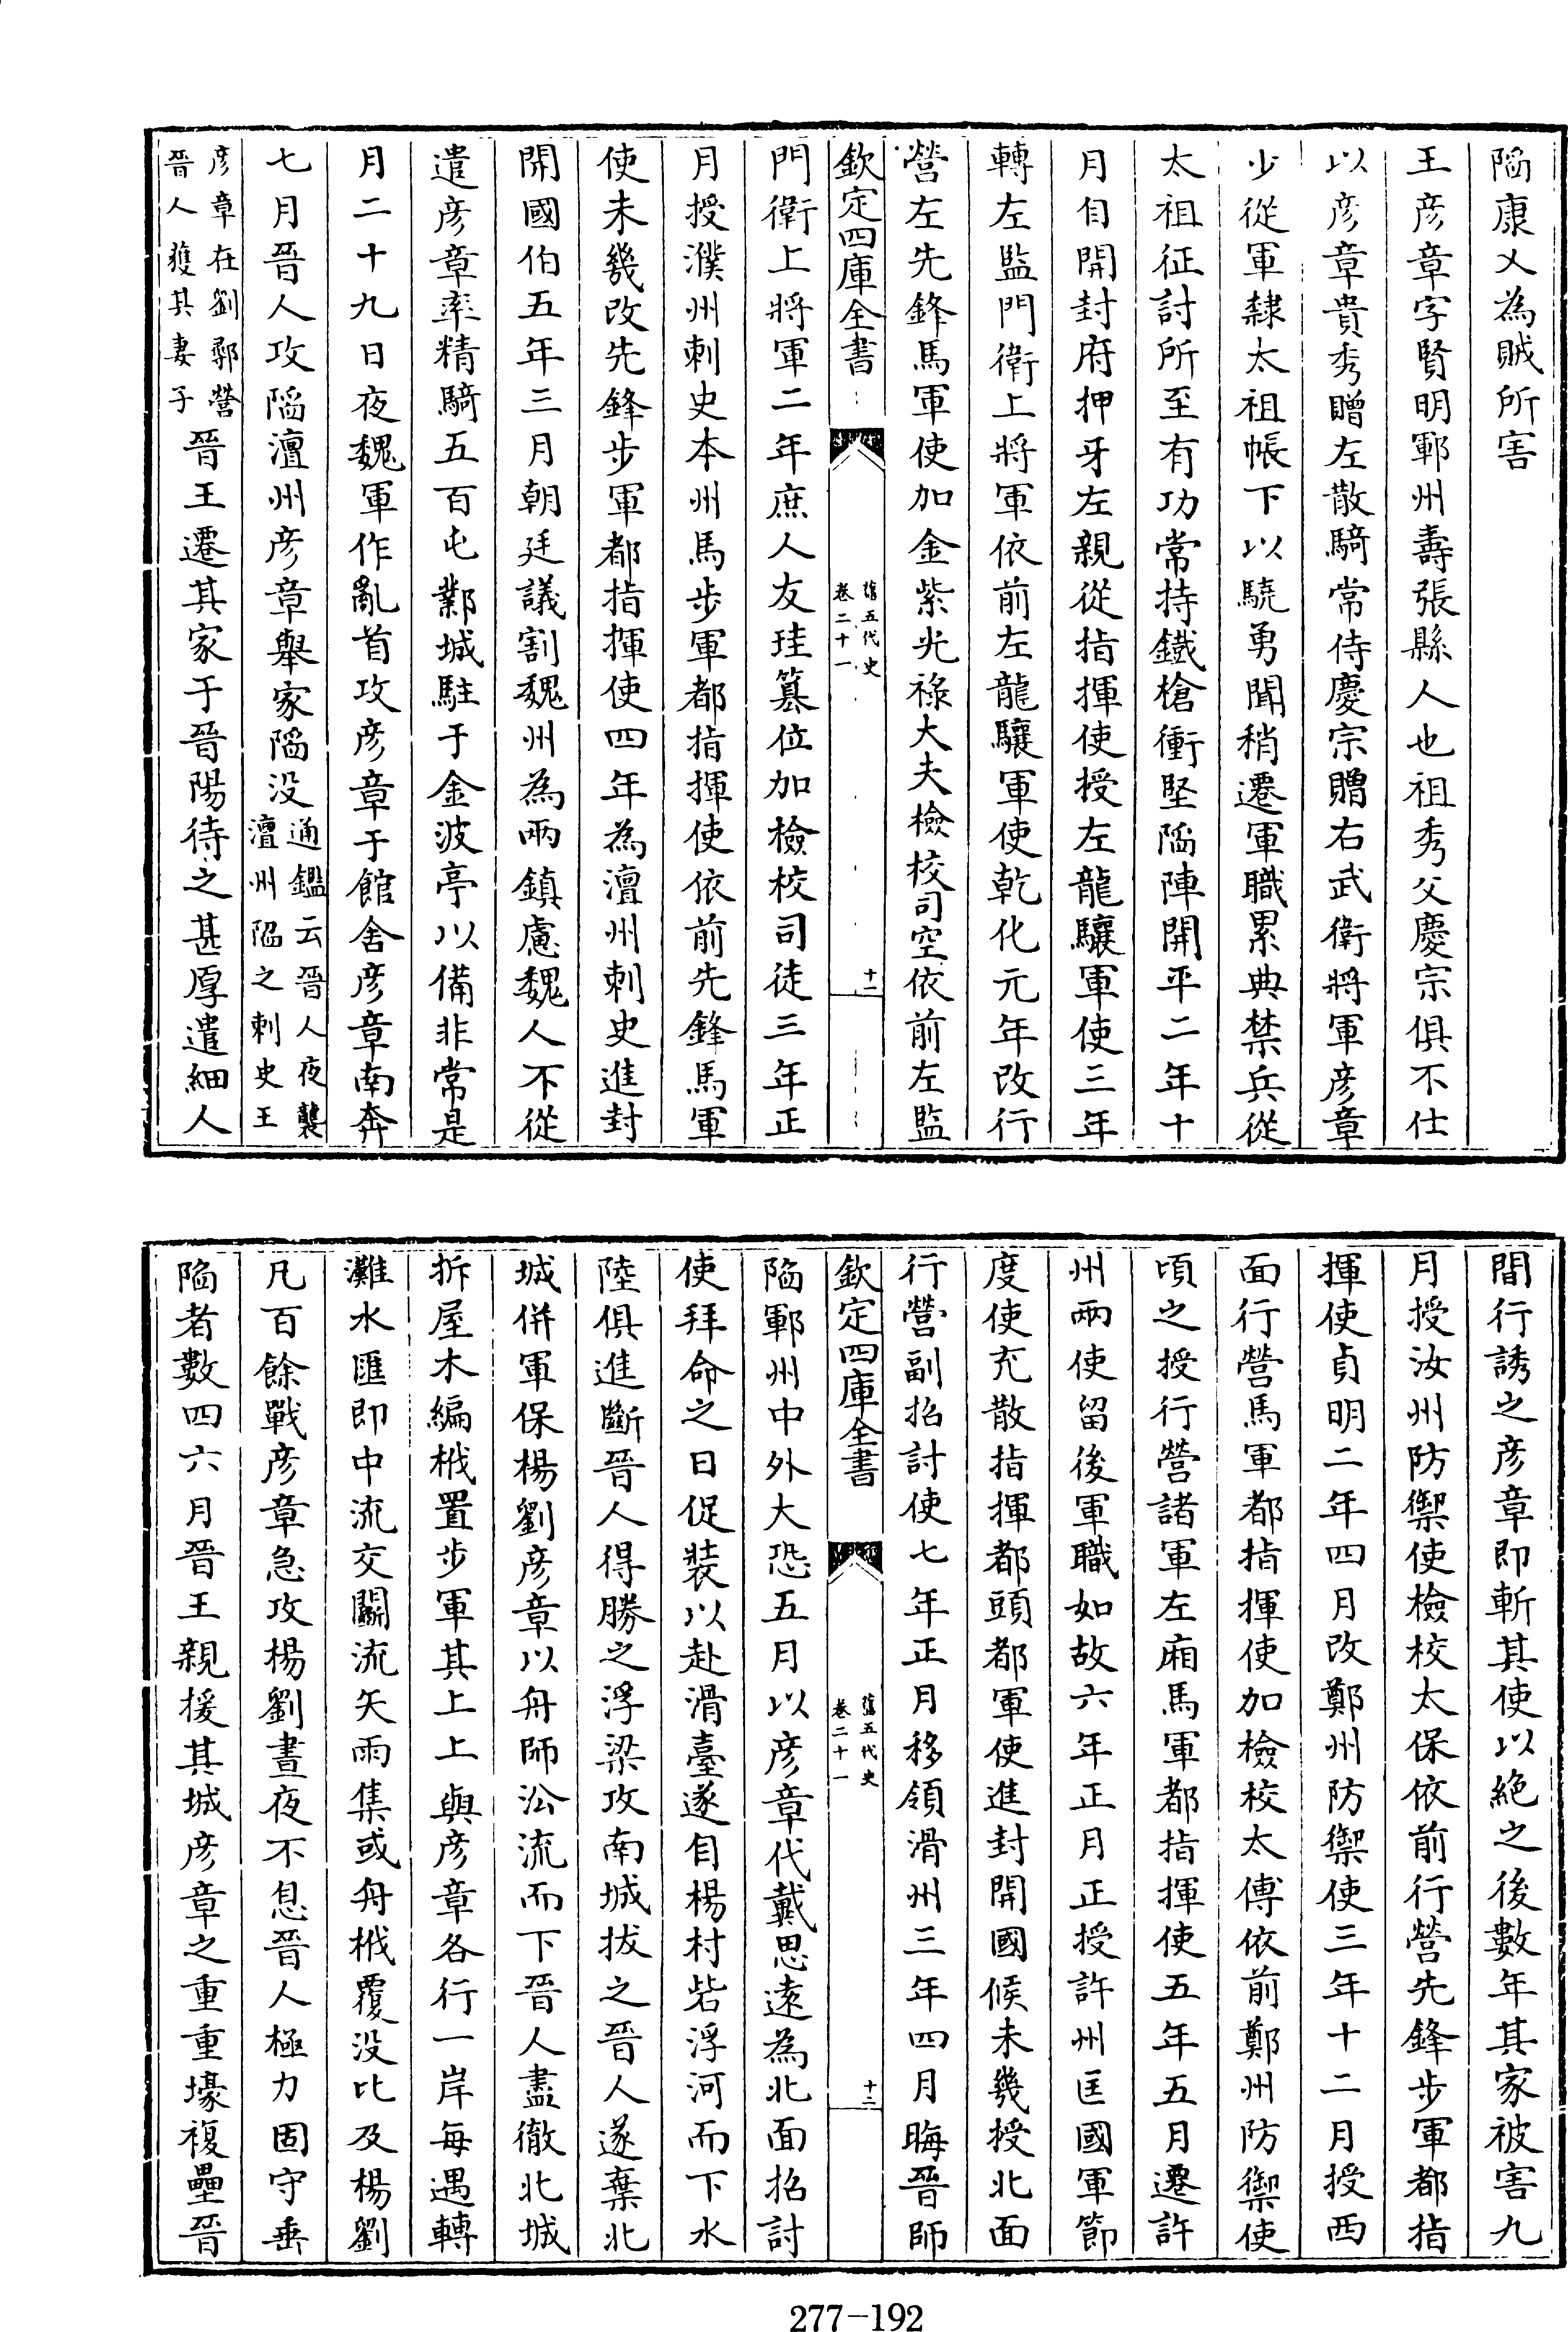 陷康乂為賊所害
王彦章字賢明鄆州壽張縣人也祖秀父慶宗俱不仕
以彦章貴秀贈左散騎常侍慶宗贈右武衛將軍彦章
少從軍隸太祖帳下以驍勇聞稍遷軍職累典禁兵從
太祖征討所至有功常持鐵槍衝堅陷陣開平二年十
月自開封府押牙左親從指揮使授左龍驤軍使三年
轉左監門衛上將軍依前左龍驤軍使乾化元年改行
營左先鋒馬軍使加金紫光祿大夫檢校司空依前左監
欽定四庫全書
舊五代史
卷二十一
十一
門衛上將軍二年庶人友珪簒位加檢校司徒三年正
月授濮州刺史本州馬步軍都指揮使依前先鋒馬軍
使未幾改先鋒步軍都指揮使四年為澶州刺史進封
開國伯五年三月朝廷議割魏州為兩鎮慮魏人不從
遣彦章率精騎五百屯鄴城駐于金波亭以備非常是
月二十九日夜魏軍作亂首攻彦章于館舍彦章南奔
七月晉人攻陷澶州彦章舉家陷没通鑑云晉人夜襲澶州陷之刺史王
彦章在劉鄩營晉人獲其妻子晉王遷其家于晉陽待之甚厚遣細人
間行誘之彦章即斬其使以絶之後數年其家被害九
月授汝州防禦使檢校太保依前行營先鋒步軍都指
揮使貞明二年四月改鄭州防禦使三年十二月授西
面行營馬軍都指揮使加檢校太傅依前鄭州防禦使
頃之授行營諸軍左廂馬軍都指揮使五年五月遷許
州兩使留後軍職如故六年正月正授許州匡國軍節
度使充散指揮都頭都軍使進封開國候未幾授北面
行營副招討使七年正月移領滑州三年四月晦晉師
欽定四庫全書
舊五代史
卷二十一
十二
陷鄆州中外大恐五月以彦章代戴思遠為北面招討
使拜命之日促装以赴滑臺遂自楊村砦浮河而下水
陸俱進斷晉人得勝之浮梁攻南城拔之晉人遂棄北
城併軍保楊劉彦章以舟師沿流而下晉人盡徹北城
拆屋木編栰置步軍其上上與彦章各行一岸每遇轉
灘水匯即中流交鬬流矢雨集或舟栰覆没比及楊劉
凡百餘戰彦章急攻楊劉晝夜不息晉人極力固守垂
陷者數四六月晉王親援其城彦章之重重壕複壘晉
277-192